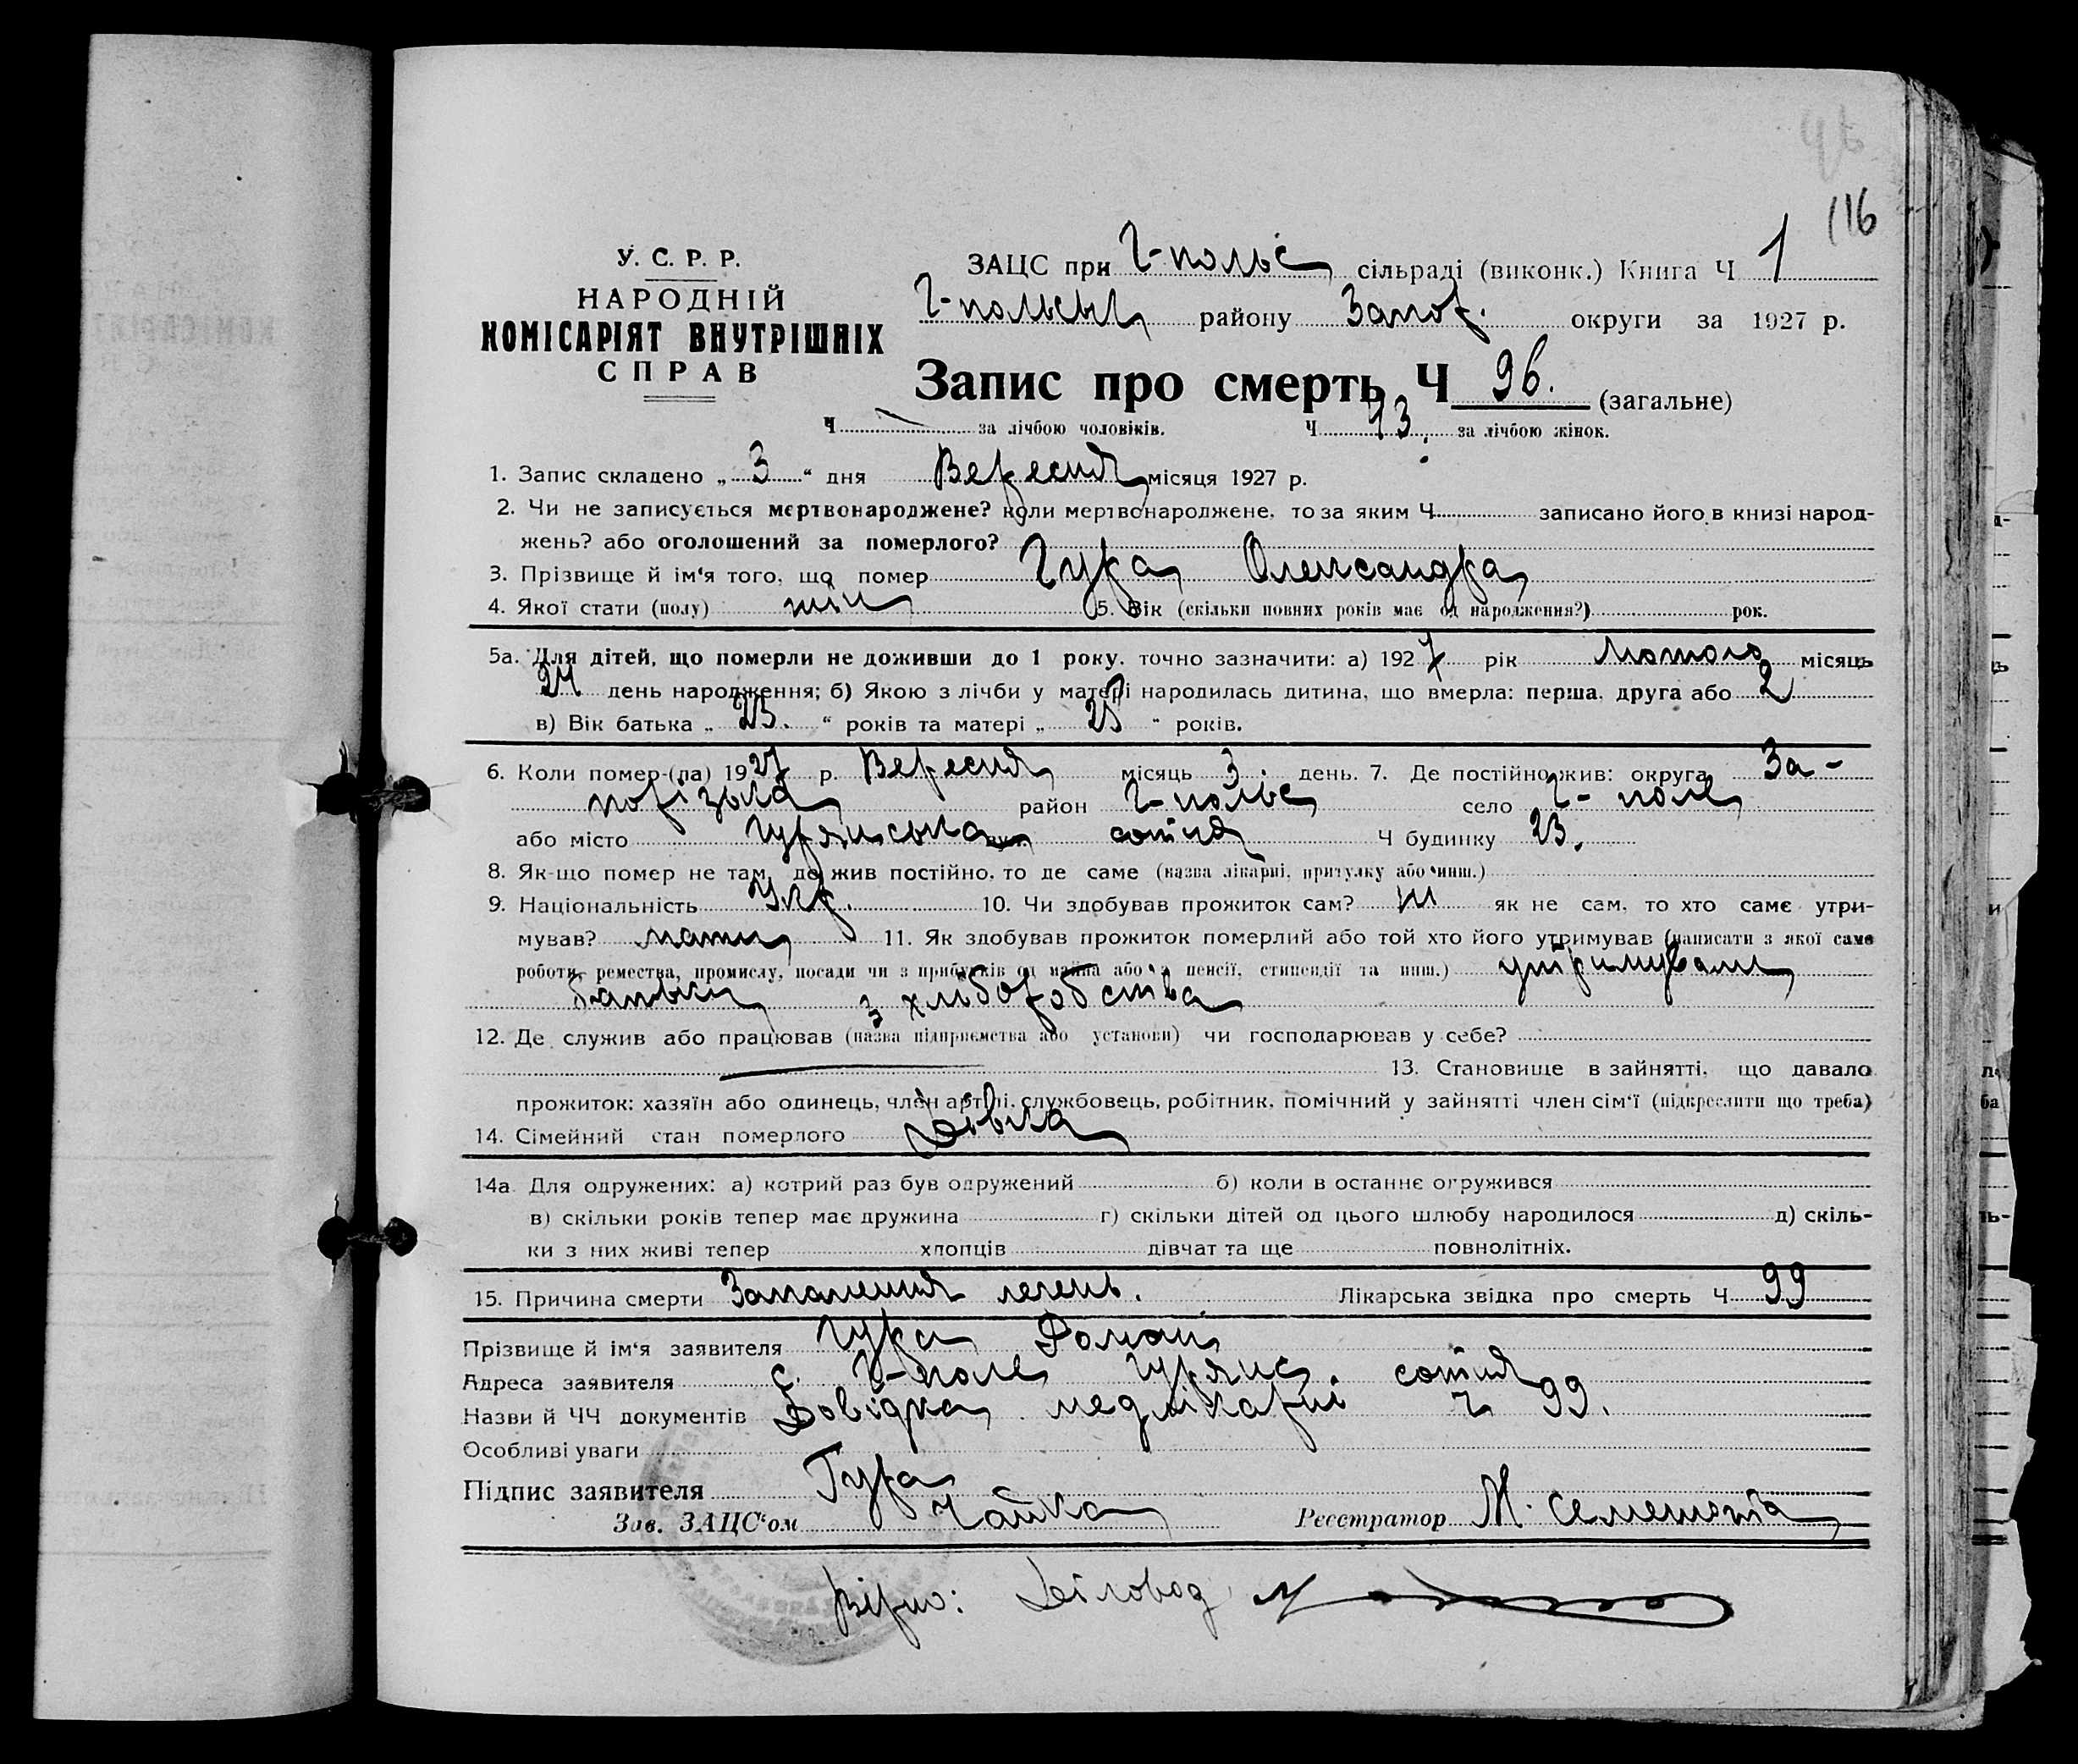 116
У. С. Р. Р.
НАРОДНІЙ
КОМІСАРІЯТ ВНУТРІШНІХ
СПРАВ
ЗАЦС при Г-польс сільраді (виконк.) Книга Ч 1
Г-польськ району Запор. округи за 1927 р.
Запис про смерть Ч 96. (загальне)
Ч за лічбою чоловіків. Ч 43 за лічбою жінок.
1. Запис складено „ 3 “ дня Вересня місяця 1927 р.
2. Чи не записується мертвонароджене? коли мертвонароджене, то за яким Ч записано його в книзі народ-
жень? або оголошений за померлого?
3. Прізвище й ім‘я того, що помер Гура Олександра
4. Якої стати (полу) жін 5. Вік (скільки повних років має од народження?) рок.
5а. Для дітей, що померли не доживши до 1 року, точно зазначити: а) 1927 рік Лютого місяць
24 день народження; б) Якою з лічби у матері народилась дитина, що вмерла: перша, друга або 2
в) Вік батька „ 23. “ років та матері „ 25 “ років.
6. Коли помер-(ла) 1927 р. Вересня місяць 3. день. 7. Де постійно жив: округа За-
порізька район Г-польс село Г-поле
або місто Гурянська вул. сотня Ч будинку 23.
8. Як-що помер не там, де жив постійно, то де саме (назва лікарні, притулку або инш.)
9. Національність Укр. 10. Чи здобував прожиток сам? ні як не сам, то хто саме утри-
мував? мати 11. Як здобував прожиток померлий або той хто його утримував (написати з якої саме
роботи, ремества, промислу, посади чи з прибутків од майна або з пенсії, стипендії та инш.) утримували
батьки з хліборобства
12. Де служив або працював (назва підприємства або установи) чи господарював у себе?
13. Становище в зайнятті, що давало
прожиток: хазяїн або одинець, член артілі, службовець, робітник, помічний у зайнятті член сім‘ї (підкреслити що треба)
14. Сімейний стан померлого Дівка
14а. Для одружених: а) котрий раз був одружений б) коли в останнє одружився
в) скільки років тепер має дружина г) скільки дітей од цього шлюбу народилося д) скіль-
ки з них живі тепер хлопців дівчат та ще повнолітніх.
15. Причина смерти Запалення легень. Лікарська звідка про смерть Ч 99
Прізвище й ім‘я заявителя Гура Роман
Адреса заявителя с. Г-поле Гурянс сотня
Назви й ЧЧ документів Довідка медлікарні ч 99.
Особливі уваги
Підпис заявителя Гура
Зав. ЗАЦС‘ом Чайка Реєстратор М. Семенюта
Вірно: Діловод